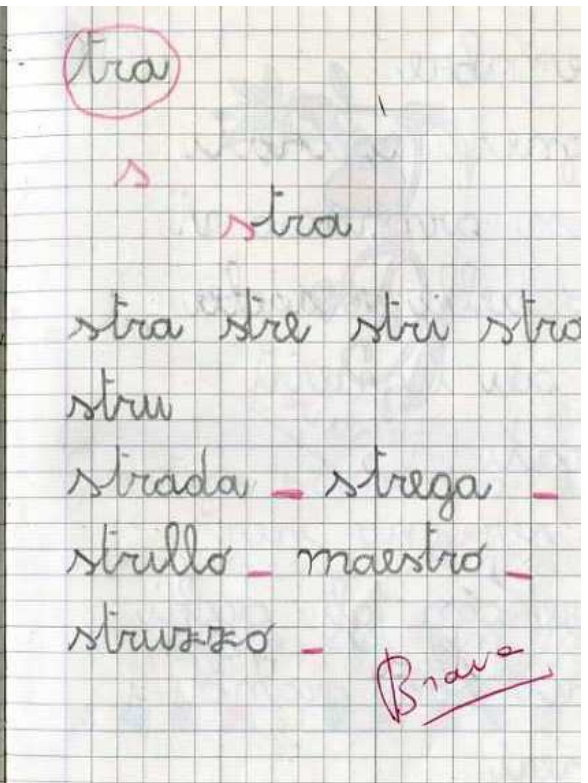 tra
s
stra
stra stre stri stro
stru
strada - strega -
strillo - maestro -
struzzo -
Brava